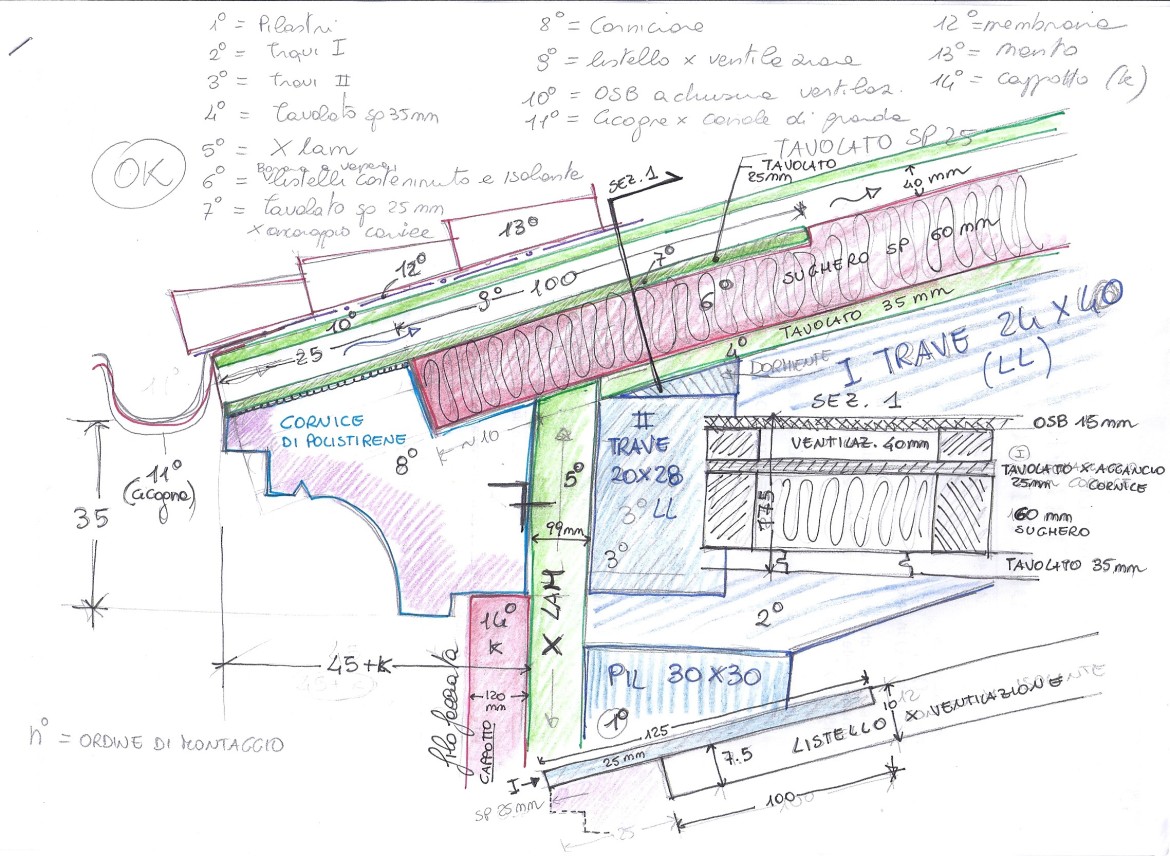 1° = Pilastri
2° = travi I
3° = travi II
4° = tavolato sp 35mm
5° = X lam
6° = listelli contenimento e isolante
7° = tavolato sp 25 mm
x ancoraggio cornice
8° = Cornicione
9° = listello x ventilazione
10° = OSB a chiusura ventilaz.
11° = Cicogne x canale di gronda
12° = membrana
13° = manto
14° = cappotto (k)
OK
TAVOLATO SP 25
TAVOLATO
25mm
SEZ. 1
40 mm
13°
12°
7°
9° 100
10°
K
25
6°
SUGHERO SP 60 mm
TAVOLATO 35 mm
4°
DORMIENTE
I TRAVE 24 X 40
(LL)
11°
11°
(cicogne)
35
CORNICE
DI POLISTIRENE
8°
~ 10
5°
99mm
X LAM
II
TRAVE
20X28
3° LL
3°
SEZ. 1
OSB 15mm
VENTILAZ. 40mm
(I)
TAVOLATO X AGGANCIO
25mm CORNICE
60 mm
SUGHERO
TAVOLATO 35mm
2°
14°
K
120
mm
CAPPOTTO
filo facciata
45+K
PIL 30X30
1°
n° = ORDINE DI MONTAGGIO
125
25mm
I
SP 25mm
25
7.5
10
12
LISTELLO X VENTILAZIONE
100